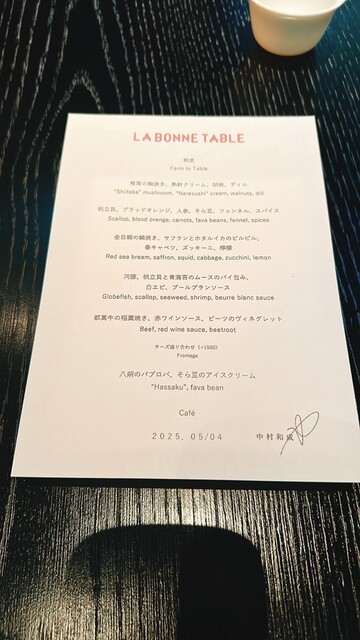 LA BONNE TABLE
野菜
Farm to Table
椎茸の鱗焼き、熟鮓クリーム、胡桃、ディル
"Shiitake" mushroom, "Narezushi" cream, walnuts, dill
帆立貝、ブラッドオレンジ、人参、そら豆、フェンネル、スパイス
Scallop, blood orange, carrots, fava beans, fennel, spices
金目鯛の鱗焼き、サフランとホタルイカのピルピル、
春キャベツ、ズッキーニ、檸檬
Red sea bream, saffron, squid, cabbage, zucchini, lemon
河豚、帆立貝と青海苔のムースのパイ包み、
白エビ、ブールブランソース
Globefish, scallop, seaweed, shrimp, beurre blanc sauce
都萬牛の稲藁焼き、赤ワインソース、ビーツのヴィネグレット
Beef, red wine sauce, beetroot
チーズ盛り合わせ (+1500)
Fromage
八朔のパブロバ、そら豆のアイスクリーム
"Hassaku", fava bean
Café
2025. 05/04
中村和成